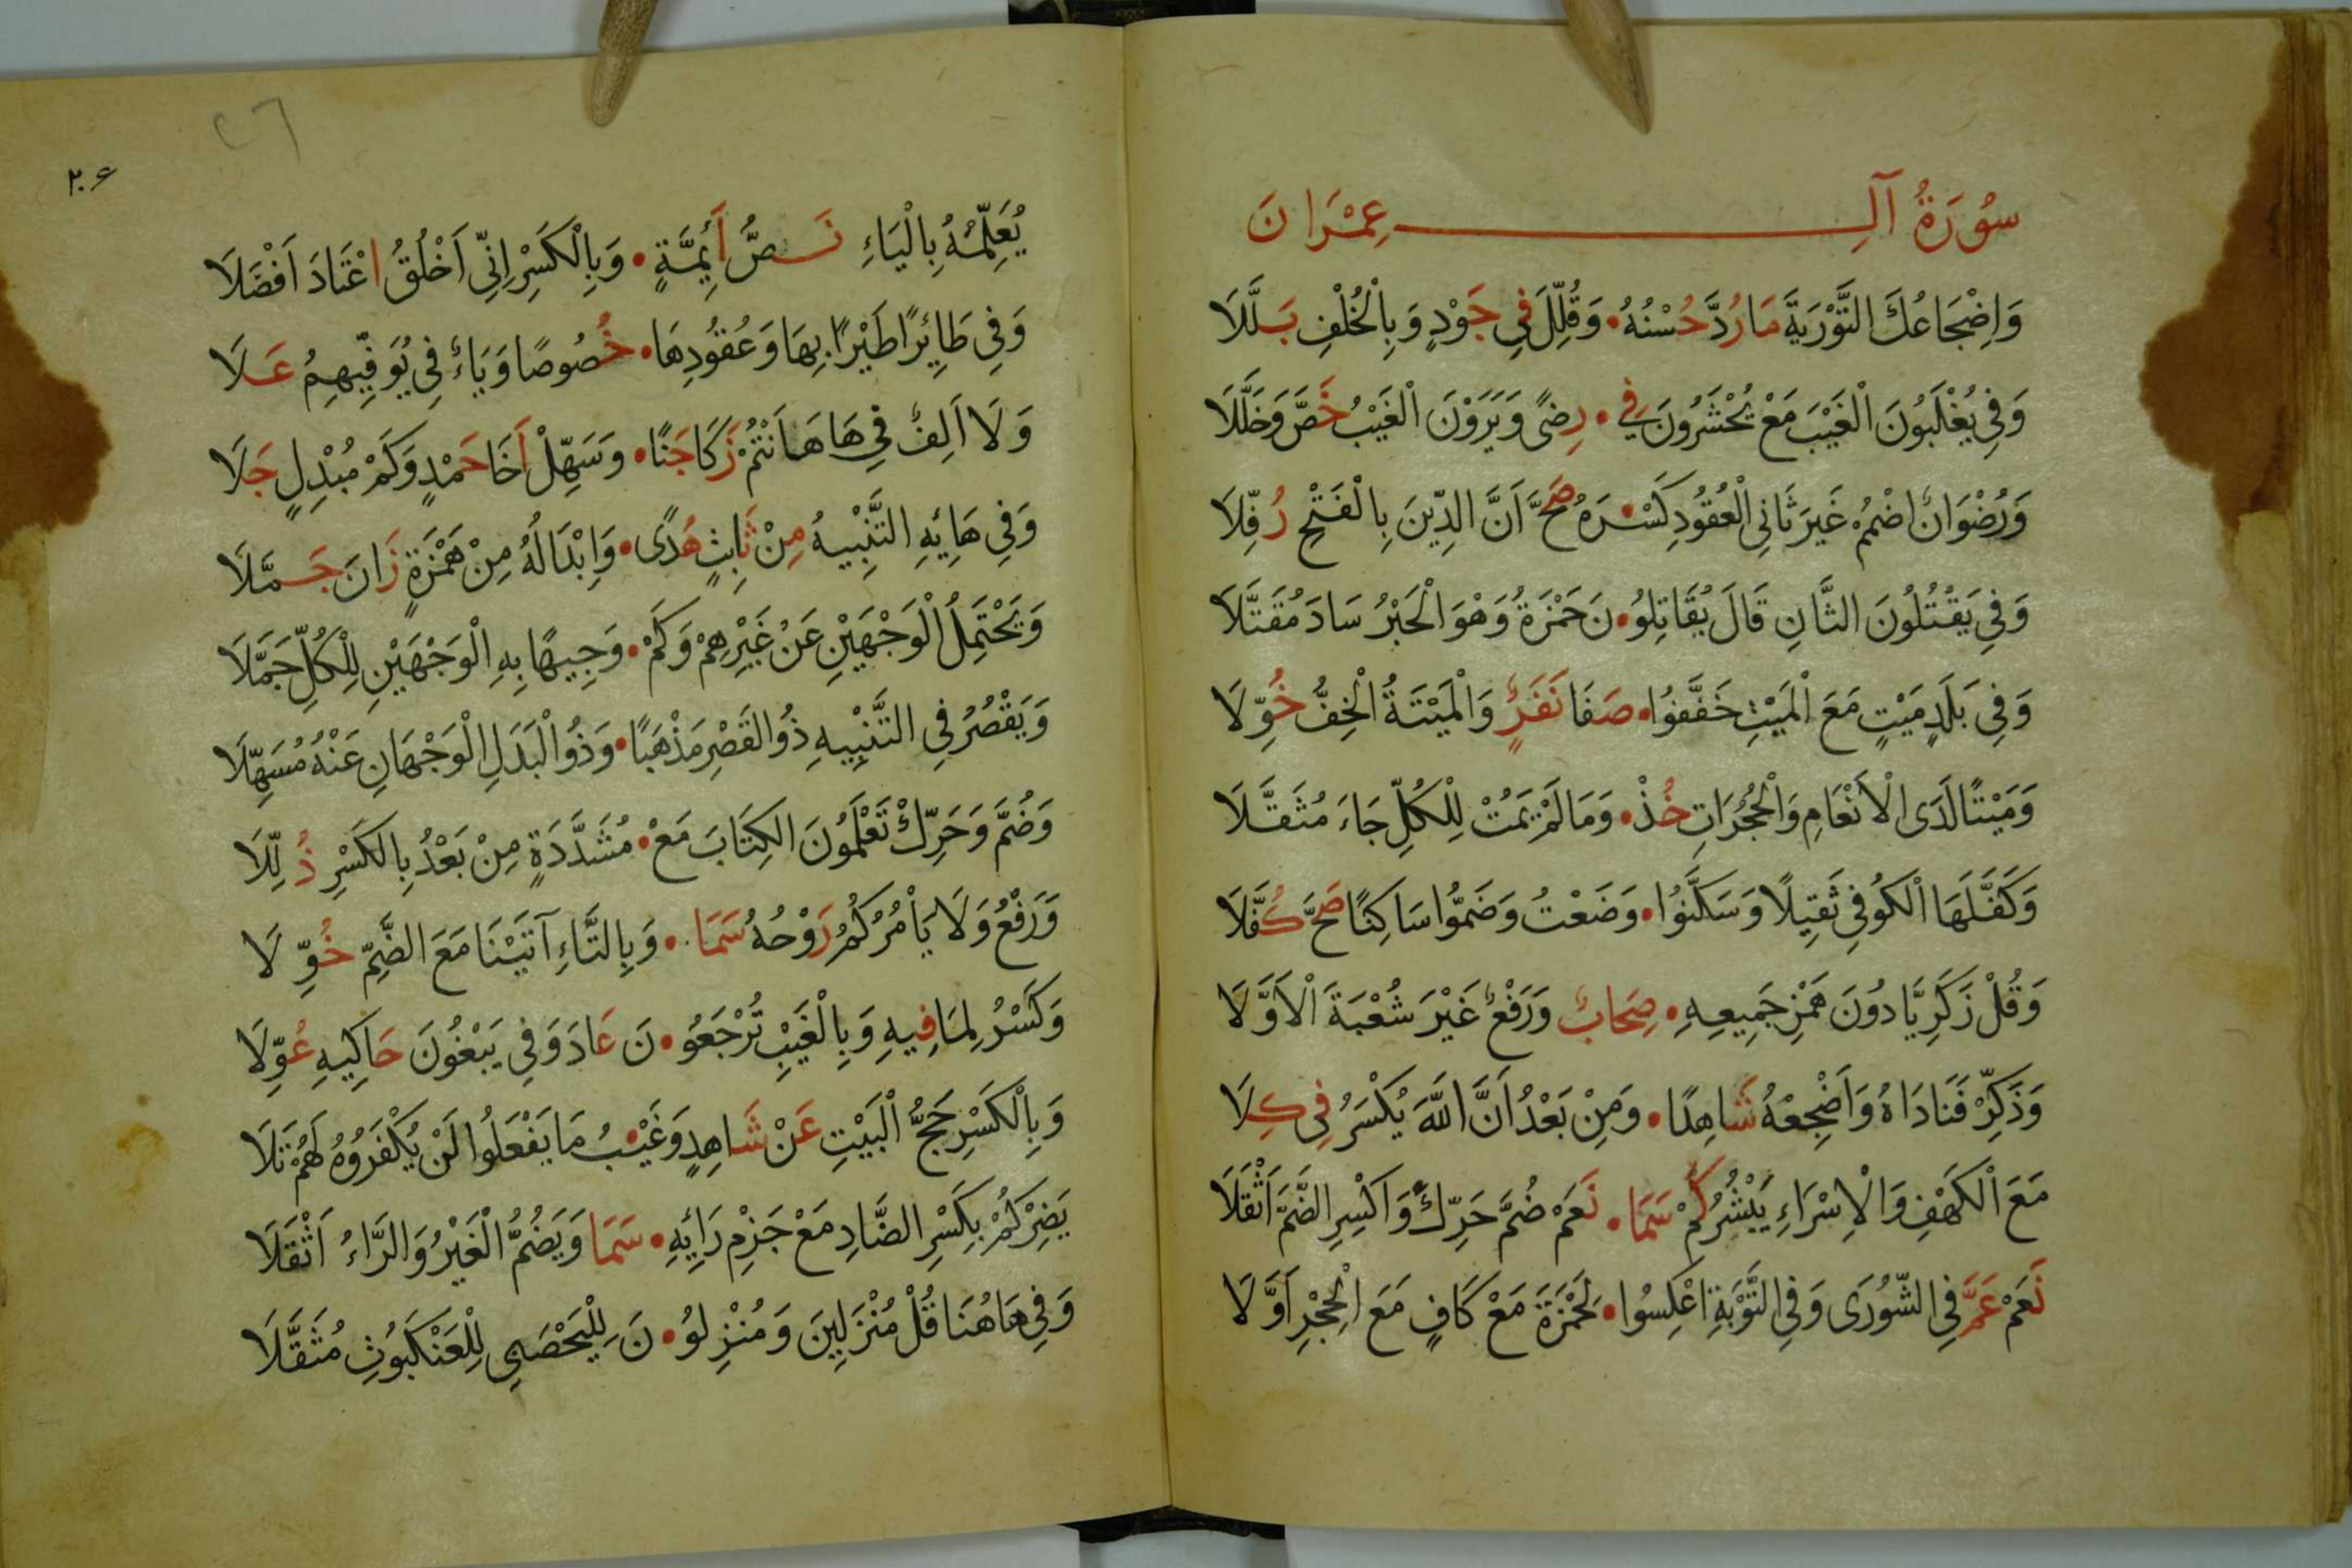 سُوْرَةُ آلِ عِمْرَانَ
وَاِضْجَاعُكَ التَّوْرَيةَ مَا رُدَّ حُسْنُهُ • وَقُلِّلَ فِي جَوْدٍ وَبِالْخُلْفِ بَلَّلَا
وَفِي يُغْلَبُونَ الْغَيْبَ مَعْ يُحْشَرُونَ فِي • رِضًى وَيَرَوْنَ الْغَيْبُ خَصَّ وَخَلَّلَا
وَرُضْوَانٌ اضْمُمْ غَيْرَ ثَانِي الْعُقُودِ كَسْ • رَهُ صَحَّ اَنَّ الدِّينَ بِالْفَتْحِ رُفِّلَا
وَفِي يَقْتُلُونَ الثَّانِ قَالَ يُقَاتِلُو • نَ حَمْزَةُ وَهْوَ الْحَبْرُ سَادَ مُقَتَّلَا
وَفِي بَلَدٍ مَيْتٍ مَعَ الْمَيْتِ خَفَّفُوا • صَفَا نَفَرٍ وَالْمَيْتَةُ الْخِفُّ خُوِّلَا
وَمَيْتًا لَدَى الْاَنْعَامِ وَالْحُجُرَاتِ خُذْ • وَمَا لَمْ يَمُتْ لِلْكُلِّ جَاءَ مُثَقَّلَا
وَكَفَّلَهَا الْكُوفِي ثَقِيلًا وَسَكَّنُوا • وَضَعْتُ وَضَمُّوا سَاكِنًا صَحَّ كُفَّلَا
وَقُلْ زَكَرِيَّا دُونَ هَمْزِ جَمِيعِهِ • صِحَابٌ وَرَفْعٌ غَيْرَ شُعْبَةَ الْاَوَّلَا
وَذَكِّرْ فَنَادَاهُ وَاَضْجِعْهُ شَاهِدًا • وَمِنْ بَعْدُ اَنَّ اللّٰهَ يُكْسَرُ فِي كِلَا
مَعَ الْكَهْفِ وَالْاِسْرَاءِ يَبْشُرُ كَمْ سَمَا • نَعَمْ ضُمَّ حَرِّكْ وَاكْسِرِ الضَّمَّ اَثْقَلَا
نَعَمْ عَمَّ فِي الشُّورَى وَفِي التَّوْبَةِ اعْكِسُوا • لِحَمْزَةَ مَعْ كَافٍ مَعَ الْحِجْرِ اَوَّلَا
٢٠٦
٢٦
يُعَلِّمُهُ بِالْيَاءِ نَصُّ أَئِمَّةٍ • وَبِالْكَسْرِ اِنِّي اَخْلُقُ اعْتَادَ اَفْضَلَا
وَفِي طَائِرًا طَيْرًا بِهَا وَعُقُودِهَا • خُصُوصًا وَيَاءٌ فِي يُوَفِّيهِمُ عَلَا
وَلَا اَلِفٌ فِي هَا هَاَنْتُمْ زَكَا جَنًا • وَسَهِّلْ أَخَا حَمْدٍ وَكَمْ مُبْدِلٍ جَلَا
وَفِي هَائِهِ التَّنْبِيهُ مِنْ ثَابِتٍ هُدًى • وَاِبْدَالُهُ مِنْ هَمْزَةٍ زَانَ جَمَّلَا
وَيَحْتَمِلُ الْوَجْهَيْنِ عَنْ غَيْرِهِمْ وَكَمْ • وَجِيهًا بِهِ الْوَجْهَيْنِ لِلْكُلِّ حَمَّلَا
وَيَقْصُرُ فِي التَّنْبِيهِ ذُو الْقَصْرِ مَذْهَبًا • وَذُو الْبَدَلِ الْوَجْهَانِ عَنْهُ مُسَهِّلَا
وَضُمَّ وَحَرِّكْ تَعْلَمُونَ الْكِتَابَ مَعْ • مُشَدَّدَةٍ مِنْ بَعْدُ بِالْكَسْرِ ذُلِّلَا
وَرَفْعُ وَلَا يَأْمُرْكُمُ رَوْحُهُ سَمَا • وَبِالتَّاءِ آتَيْنَا مَعَ الضَّمِّ خُوِّلَا
وَكَسْرُ لِمَا فِيهِ وَبِالْغَيْبِ تُرْجَعُو • نَ عَادَ وَفِي يَبْغُونَ حَاكِيهِ عُوِّلَا
وَبِالْكَسْرِ حَجُّ الْبَيْتِ عَنْ شَاهِدٍ وَغَيْ • بُ مَا يَفْعَلُوا لَنْ يُكْفَرُوهُ لَهُمْ تَلَا
يَضِرْكُمْ بِكَسْرِ الضَّادِ مَعْ جَزْمِ رَائِهِ • سَمَا وَيَضُمُّ الْغَيْرُ وَالرَّاءُ اَثْقَلَا
وَفِي هَاهُنَا قُلْ مُنْزَلِينَ وَمُنْزِلُو • نَ لِلْيَحْصَبِي لِلْعَنْكَبُوتِ مُثَقَّلَا